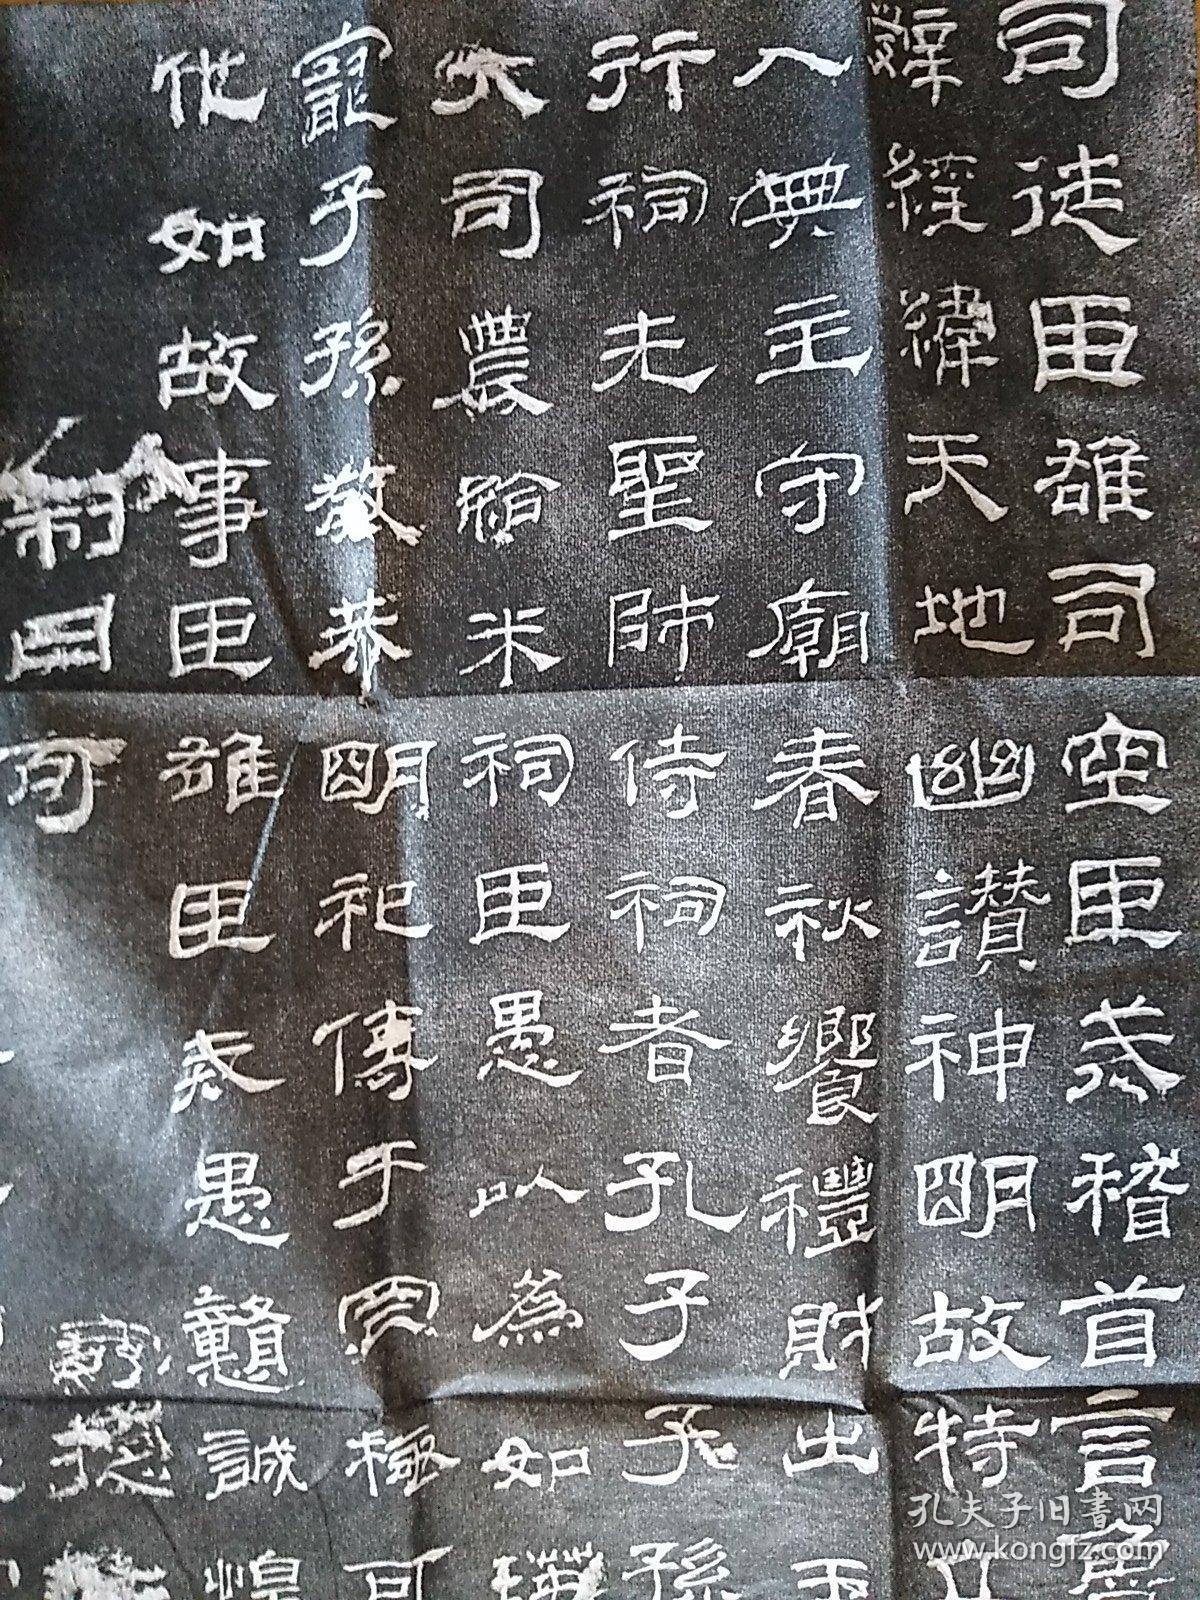 司徒臣雄司空臣戒稽首言魯
辭經緯天地幽讚神明故特立
人典主守廟春秋饗禮財出王
行祠先聖師侍祠者孔子子孫
大司農給米祠臣愚以為如瑛
寵子孫敬恭明祀傳于罔極可
他如故事臣雄臣戒愚戇誠惶
制曰可
孔夫子旧書网
www.kongfz.com